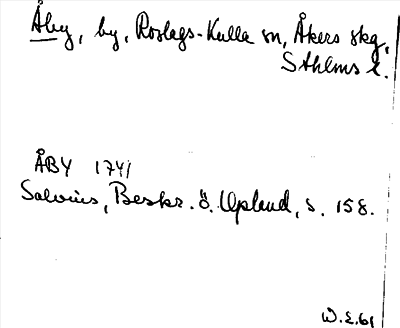 Åby, by, Roslags-Kulla sn, Åkers skg,
Sthlms l.
ÅBY 1741
Salvius, Beskr. ö. Upland, s. 158.
W.E.61